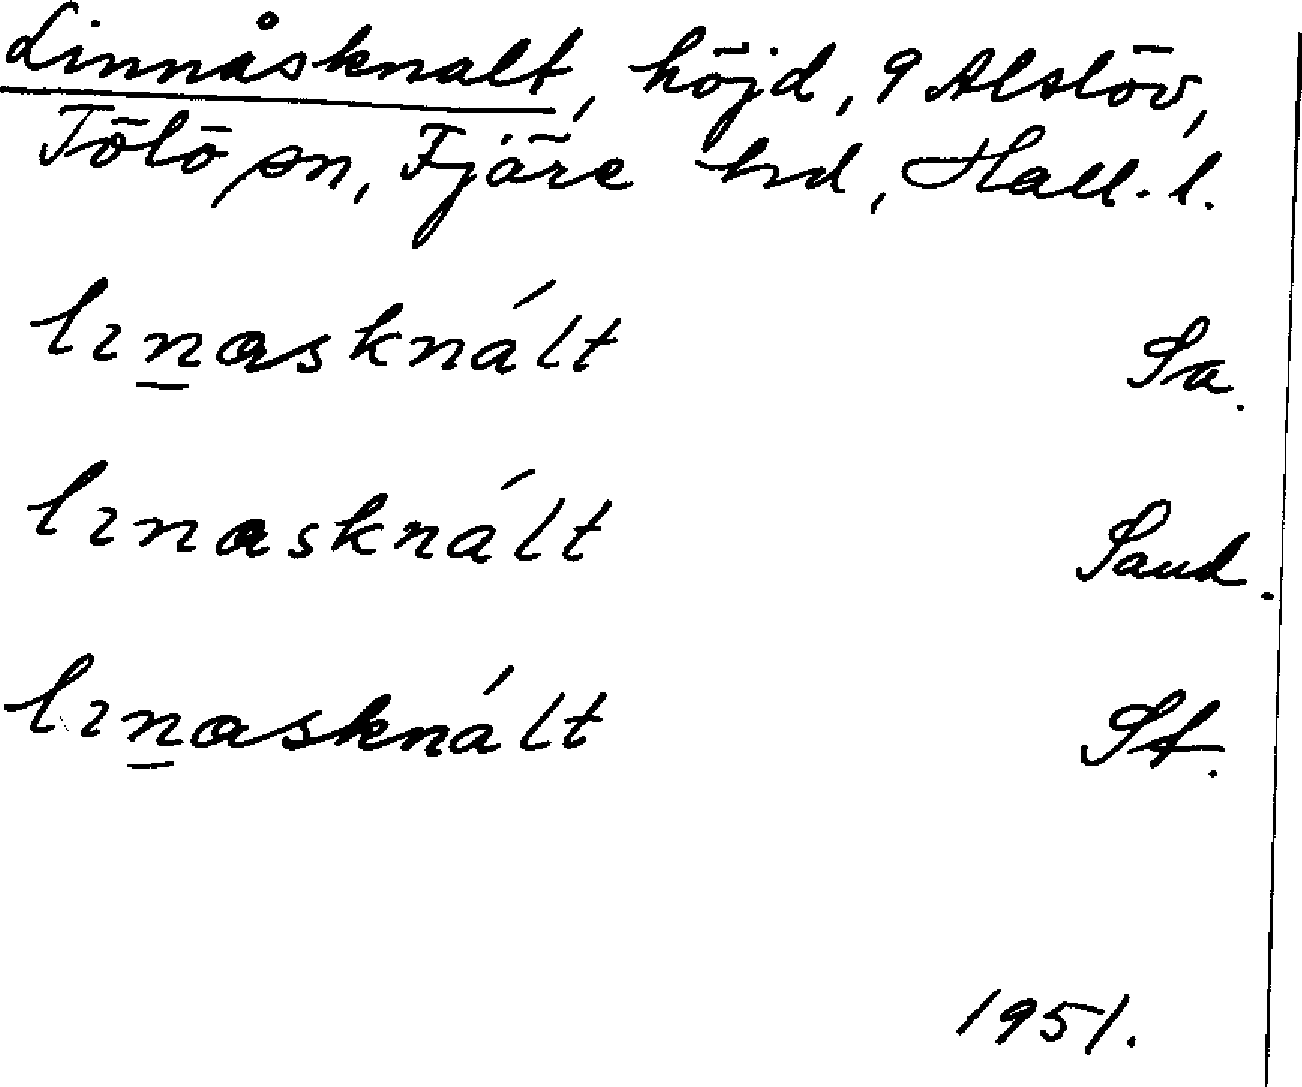 Linnåsknalt, höjd, 9 Alslöv,
Tölö sn, Fjäre hrd, Hall. l.
lınasknált Sa.
lınasknált Sand.
lınasknált St.
1951.